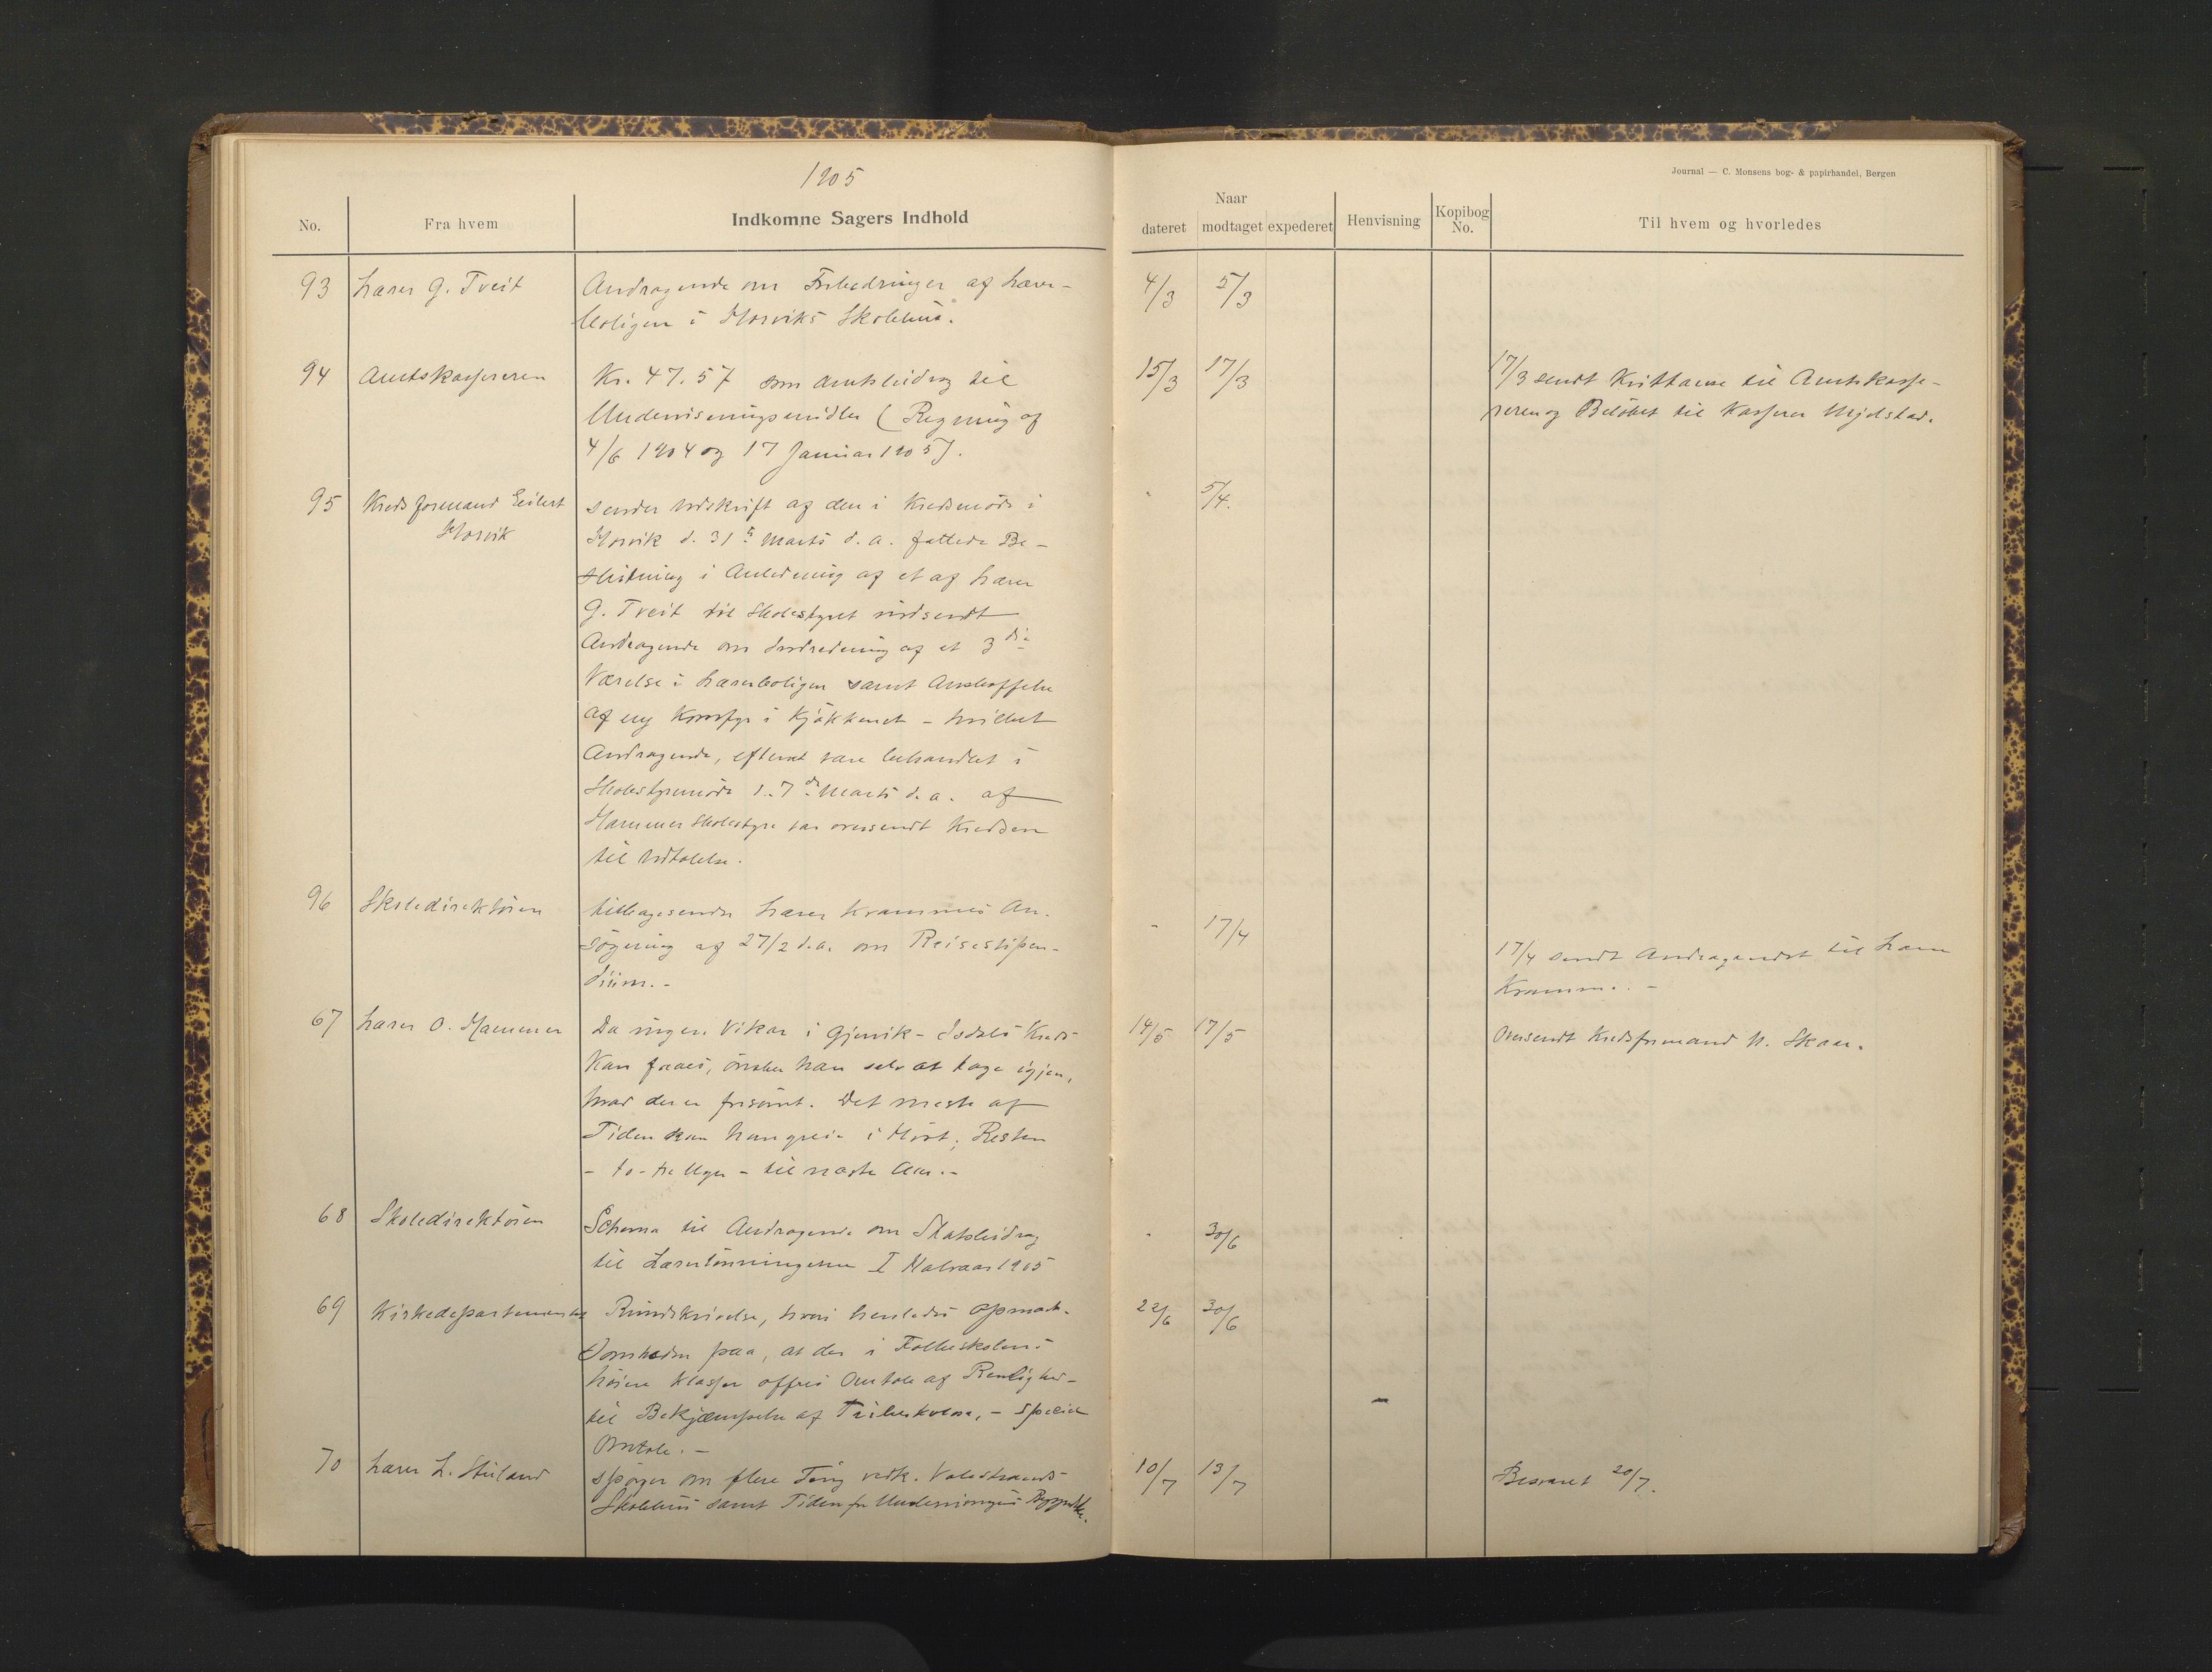 1905
Journal — C. Monsens bog- & papirhandel, Bergen
No.
Fra hvem
Indkomne Sagers Indhold
Naar
dateret
modtaget
expederet
Henvisning
Kopibog
No.
Til hvem og hvorledes
93 Lærer G. Tveit Andragende om Forbedringer af Lærer- 4/3 5/3
boligen i Morviks Skolehus.
94 Amtskassereren Kr. 47.57 som Amtsbidrag til 15/3 17/3 17/3 sendt Kvittance til Amtskasse-
Undervisningsmidler (Regning af reren og Beløbet til Kasserer Mjelstad.
4/6 1904 og 17 Januar 1905).
95 Kredsformand Eilert sender Udskrift af den i Kredsmøde i " 5/4.
Morvik Morvik d. 31te Marts d. a. fattede Be-
slutning i Anledning af et af Lærer
G. Tveit til Skolestyret indsendt
Andragende om Indredning af et 3die
Værelse i Lærerboligen samt Anskaffelse
af ny Komfyr i Kjøkkenet – hvilket
Andragende, efterat være behandlet i
Skolestyremøde d. 7de Marts d. a. af
Hammer Skolestyre var oversendt Kredsen
til Udtalelse.
96 Skoledirektøren tilbagesender Lærer Krammes An- " 17/4
søgning af 27/2 d.a. om Reisestipen- 17/4 sendt Andragendet til Lærer
dium. – Kramme. –
67 Lærer O. Hammer Da ingen Vikar i Gjervik-Isdals Kreds 14/5 17/5 Oversendt Kredsformand N. Skaar.
kan faaes, ønsker han selv at tage igjen,
hvad der er forsømt. Det meste af
Tiden kan han greie i Høst; Resten
– to-tre Uger – til næste Aar. –
68 Skoledirektøren Schema til Andragende om Statsbidrag " 30/6
til Lærerlønningerne I Halvaar 1905
69 Kirkedepartementet Rundskrivelse, hvori henledes Opmærk- 22/6 30/6
somheden paa, at der i Folkeskolens
høiere Klasser ofres Omtale af Renlighed
til Bekjæmpelse af Tuberkulose, – speciel
Omtale. –
70 Lærer L. Stuland spørger om flere Ting vedk. Valestrands 10/7 13/7 Besvaret 20/7.
Skolehus samt Tiden for Undervisningens Begyndelse.